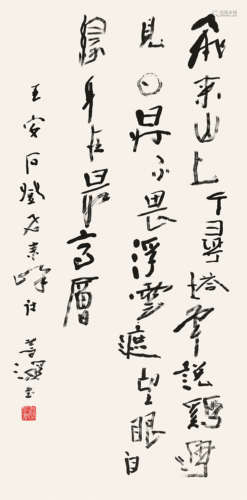 飛來山上千尋塔聞說雞鳴
見日昇不畏浮雲遮望眼自
緣身在最高層
王安石登飛來峰詩